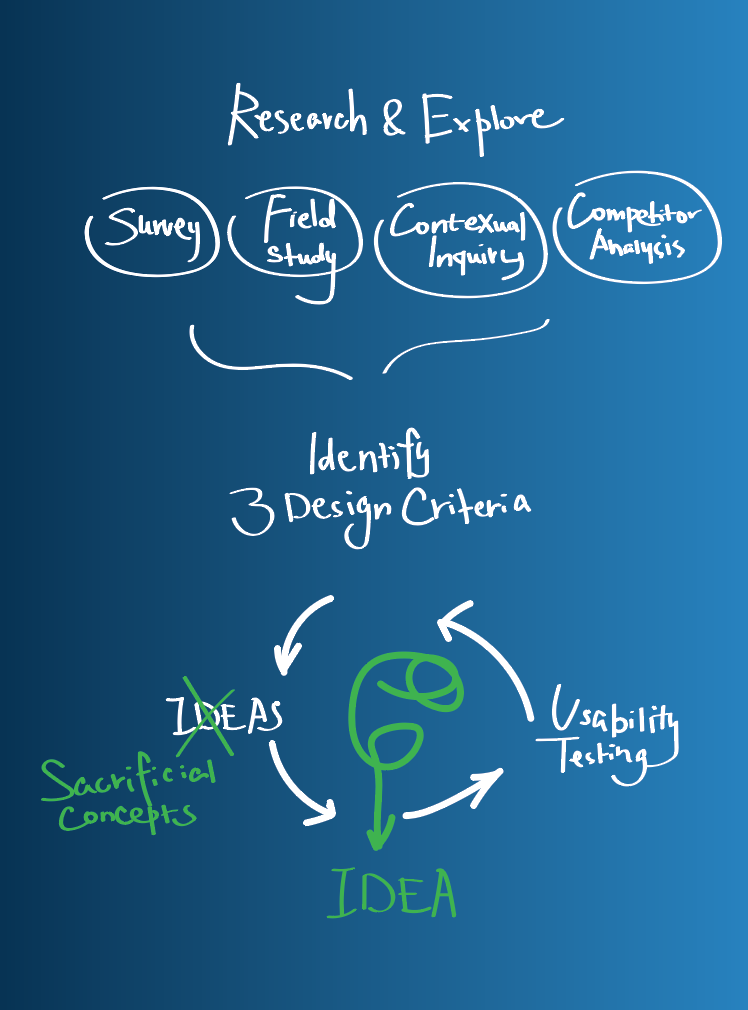 Research & Explore
Survey
Field
Study
Contexual
Inquiry
Competitor
Analysis
Identify
3 Design Criteria
IDEAS
Sacrificial
Concepts
Usability
Testing
IDEA